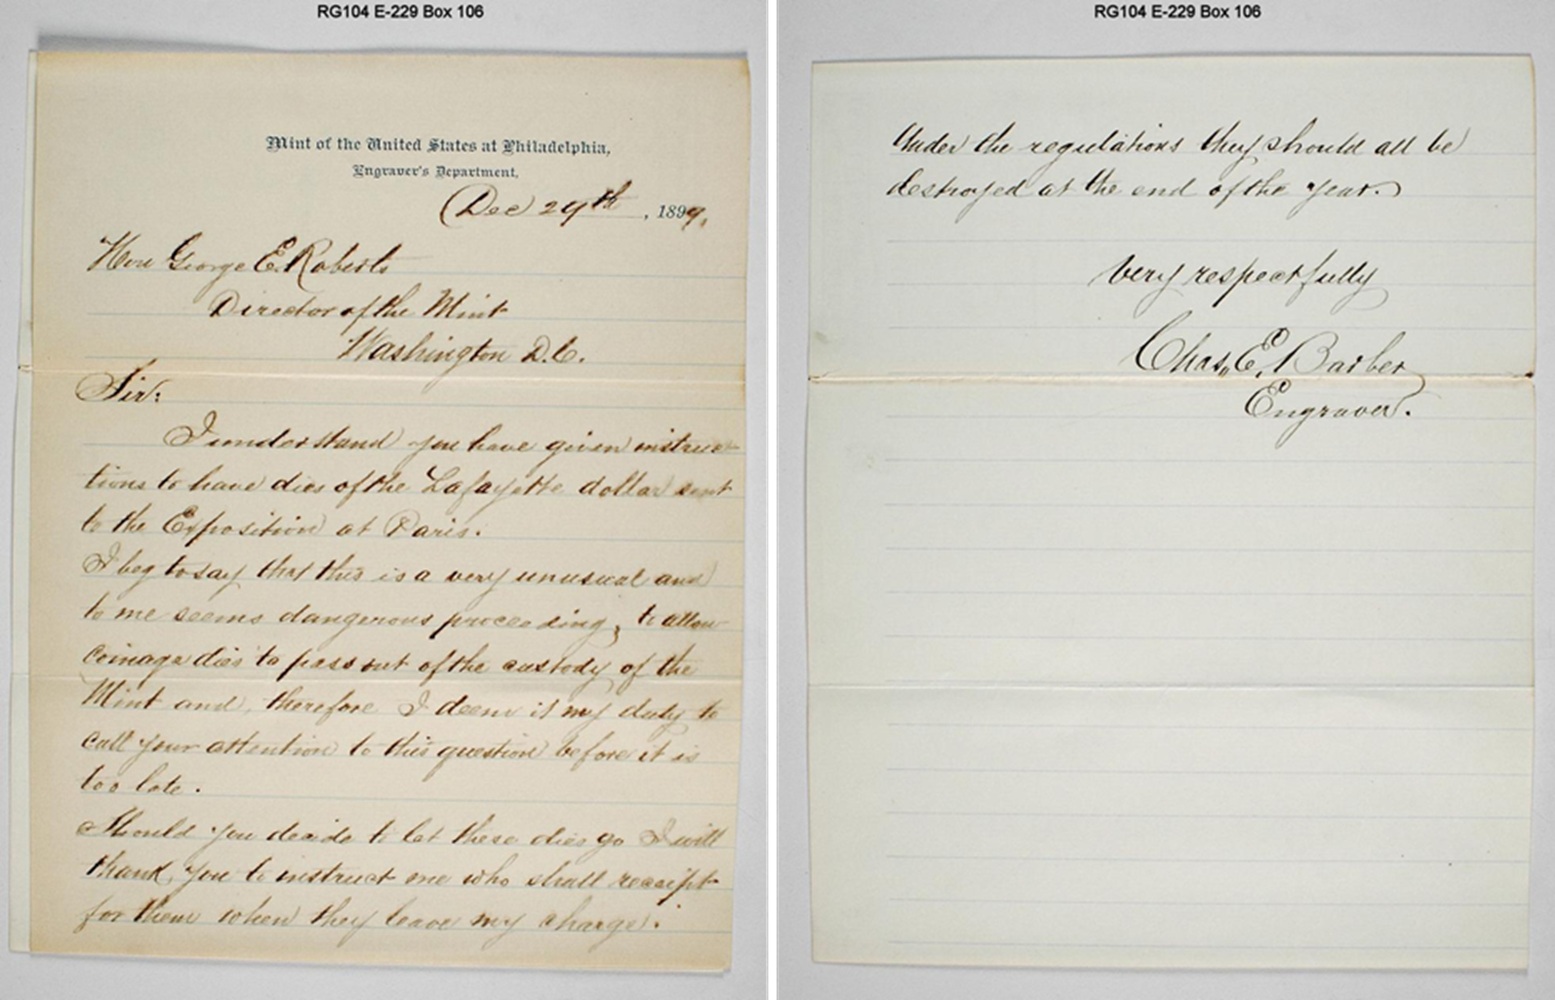 RG104 E-229 Box 106
Mint of the United States at Philadelphia,
Engraver's Department,
Dec 29th, 1899.
Hon George E. Roberts
Director of the Mint
Washington D.C.
Sir:
I understand you have given instruc-
tions to have dies of the Lafayette dollar sent
to the Exposition at Paris.
I beg to say that this is a very unusual and
to me seems dangerous proceeding, to allow
coinage dies to pass out of the custody of the
Mint and, therefore I deem it my duty to
call your attention to this question before it is
too late.
Should you decide to let these dies go I will
thank you to instruct me who shall receipt
for them when they leave my charge.
RG104 E-229 Box 106
Under the regulations they should all be
destroyed at the end of the year.
Very respectfully
Chas. E. Barber
Engraver.